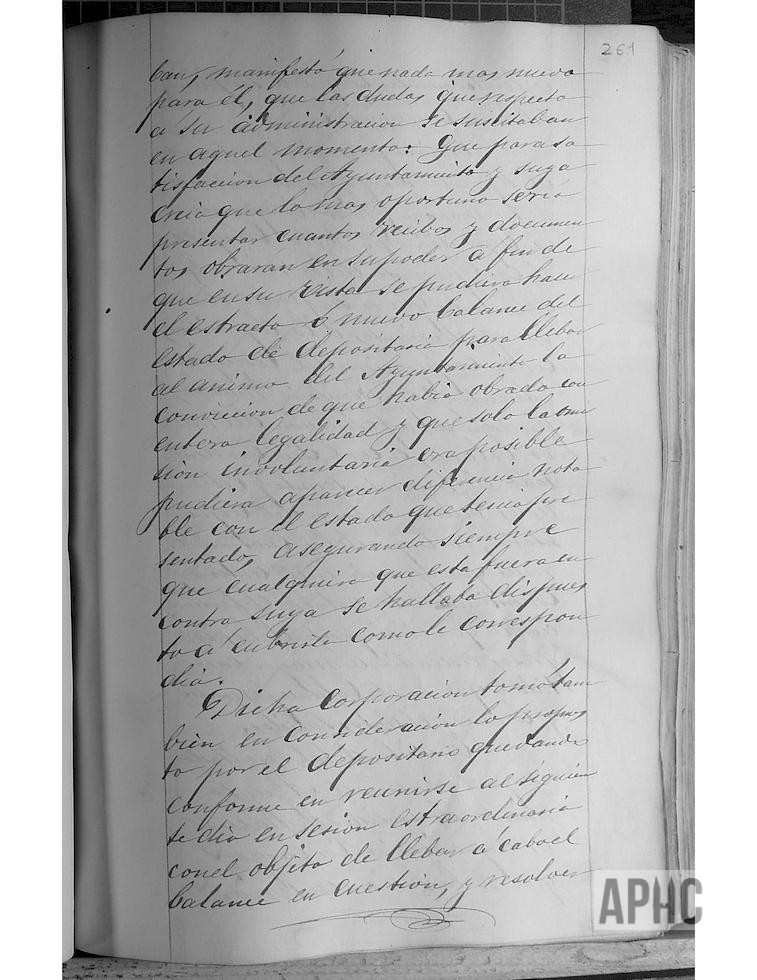 261
ban, manifestó que nada mas nuevo
para él, que las dudas que respecto
a su administracion se suscitaban
en aquel momento: Que para sa
tisfaccion del Ayuntamiento y suya
creia que lo mas oportuno seria
presentar cuantos recibos y documen
tos obraran en su poder a fin de
que en su vista se pudiera hacer
el estracto ó nuevo balance del
estado de depositaria para llebar
al animo del Ayuntamiento la
conviccion de que habia obrado con
entera legalidad y que solo la omi
sion involuntaria era posible
pudiera aparecer diferencia nota
ble con el estado que tenia pre
sentado, asegurando siempre
que cualquiera que esta fuera en
contra suya se hallaba dispues
to á cubrirla como le correspon
dia.
Dicha Corporacion tomó tam
bien en consideracion lo propues
to por el depositario quedando
conforme en reunirse al siguien
te dia en sesion estraordinaria
con el objeto de llebar á cabo el
balance en cuestion, y resolver
APHC